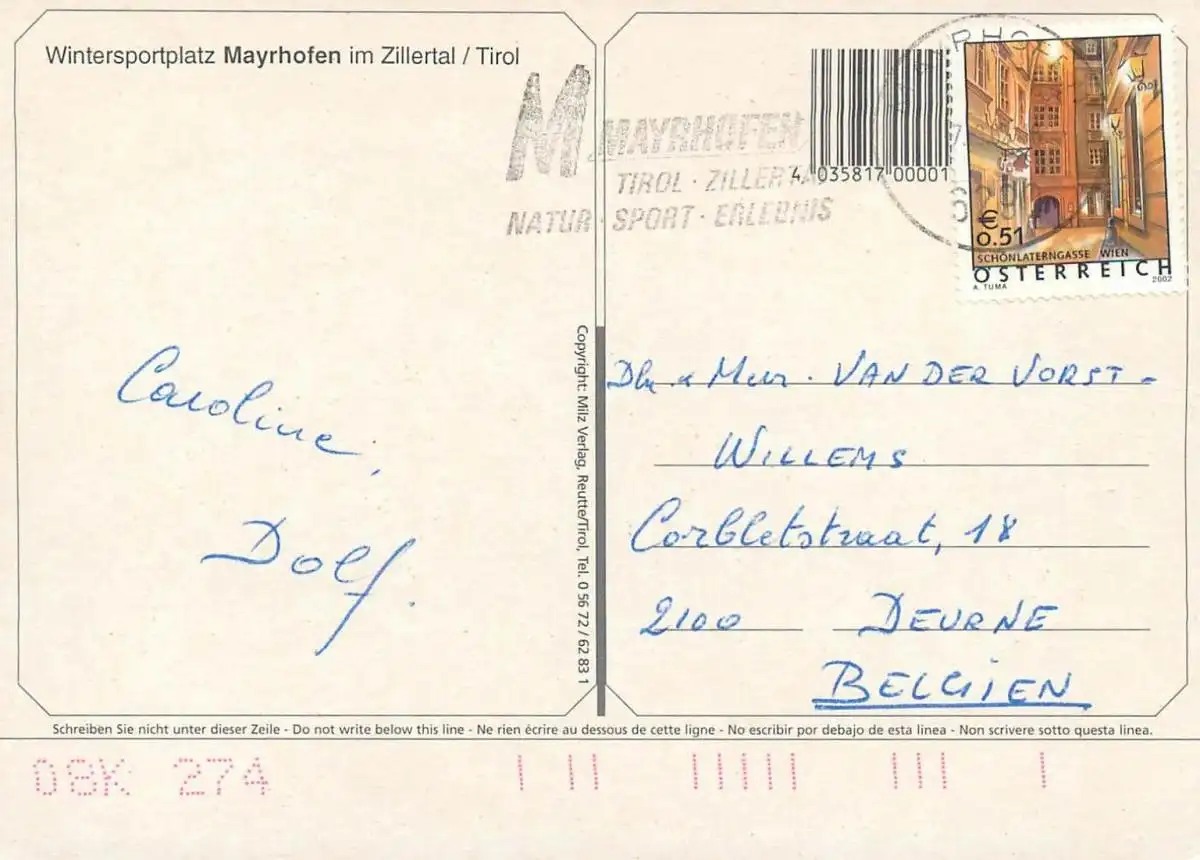 Wintersportplatz Mayrhofen im Zillertal / Tirol
M MAYRHOFEN
TIROL · ZILLERTAL
NATUR · SPORT · ERLEBNIS
4 035817 00001
€
0.51
SCHÖNLATERNGASSE WIEN
ÖSTERREICH
A. TUMA 2002
Caroline,
Dolf.
Copyright: Milz Verlag, Reutte/Tirol, Tel. 0 56 72 / 62 83 1
Dhr. & Mevr. VAN DER VORST-
WILLEMS
Corbletstraat, 18
2100 DEURNE
BELGIEN
Schreiben Sie nicht unter dieser Zeile - Do not write below this line - Ne rien écrire au dessous de cette ligne - No escribir por debajo de esta linea - Non scrivere sotto questa linea.
08K 274